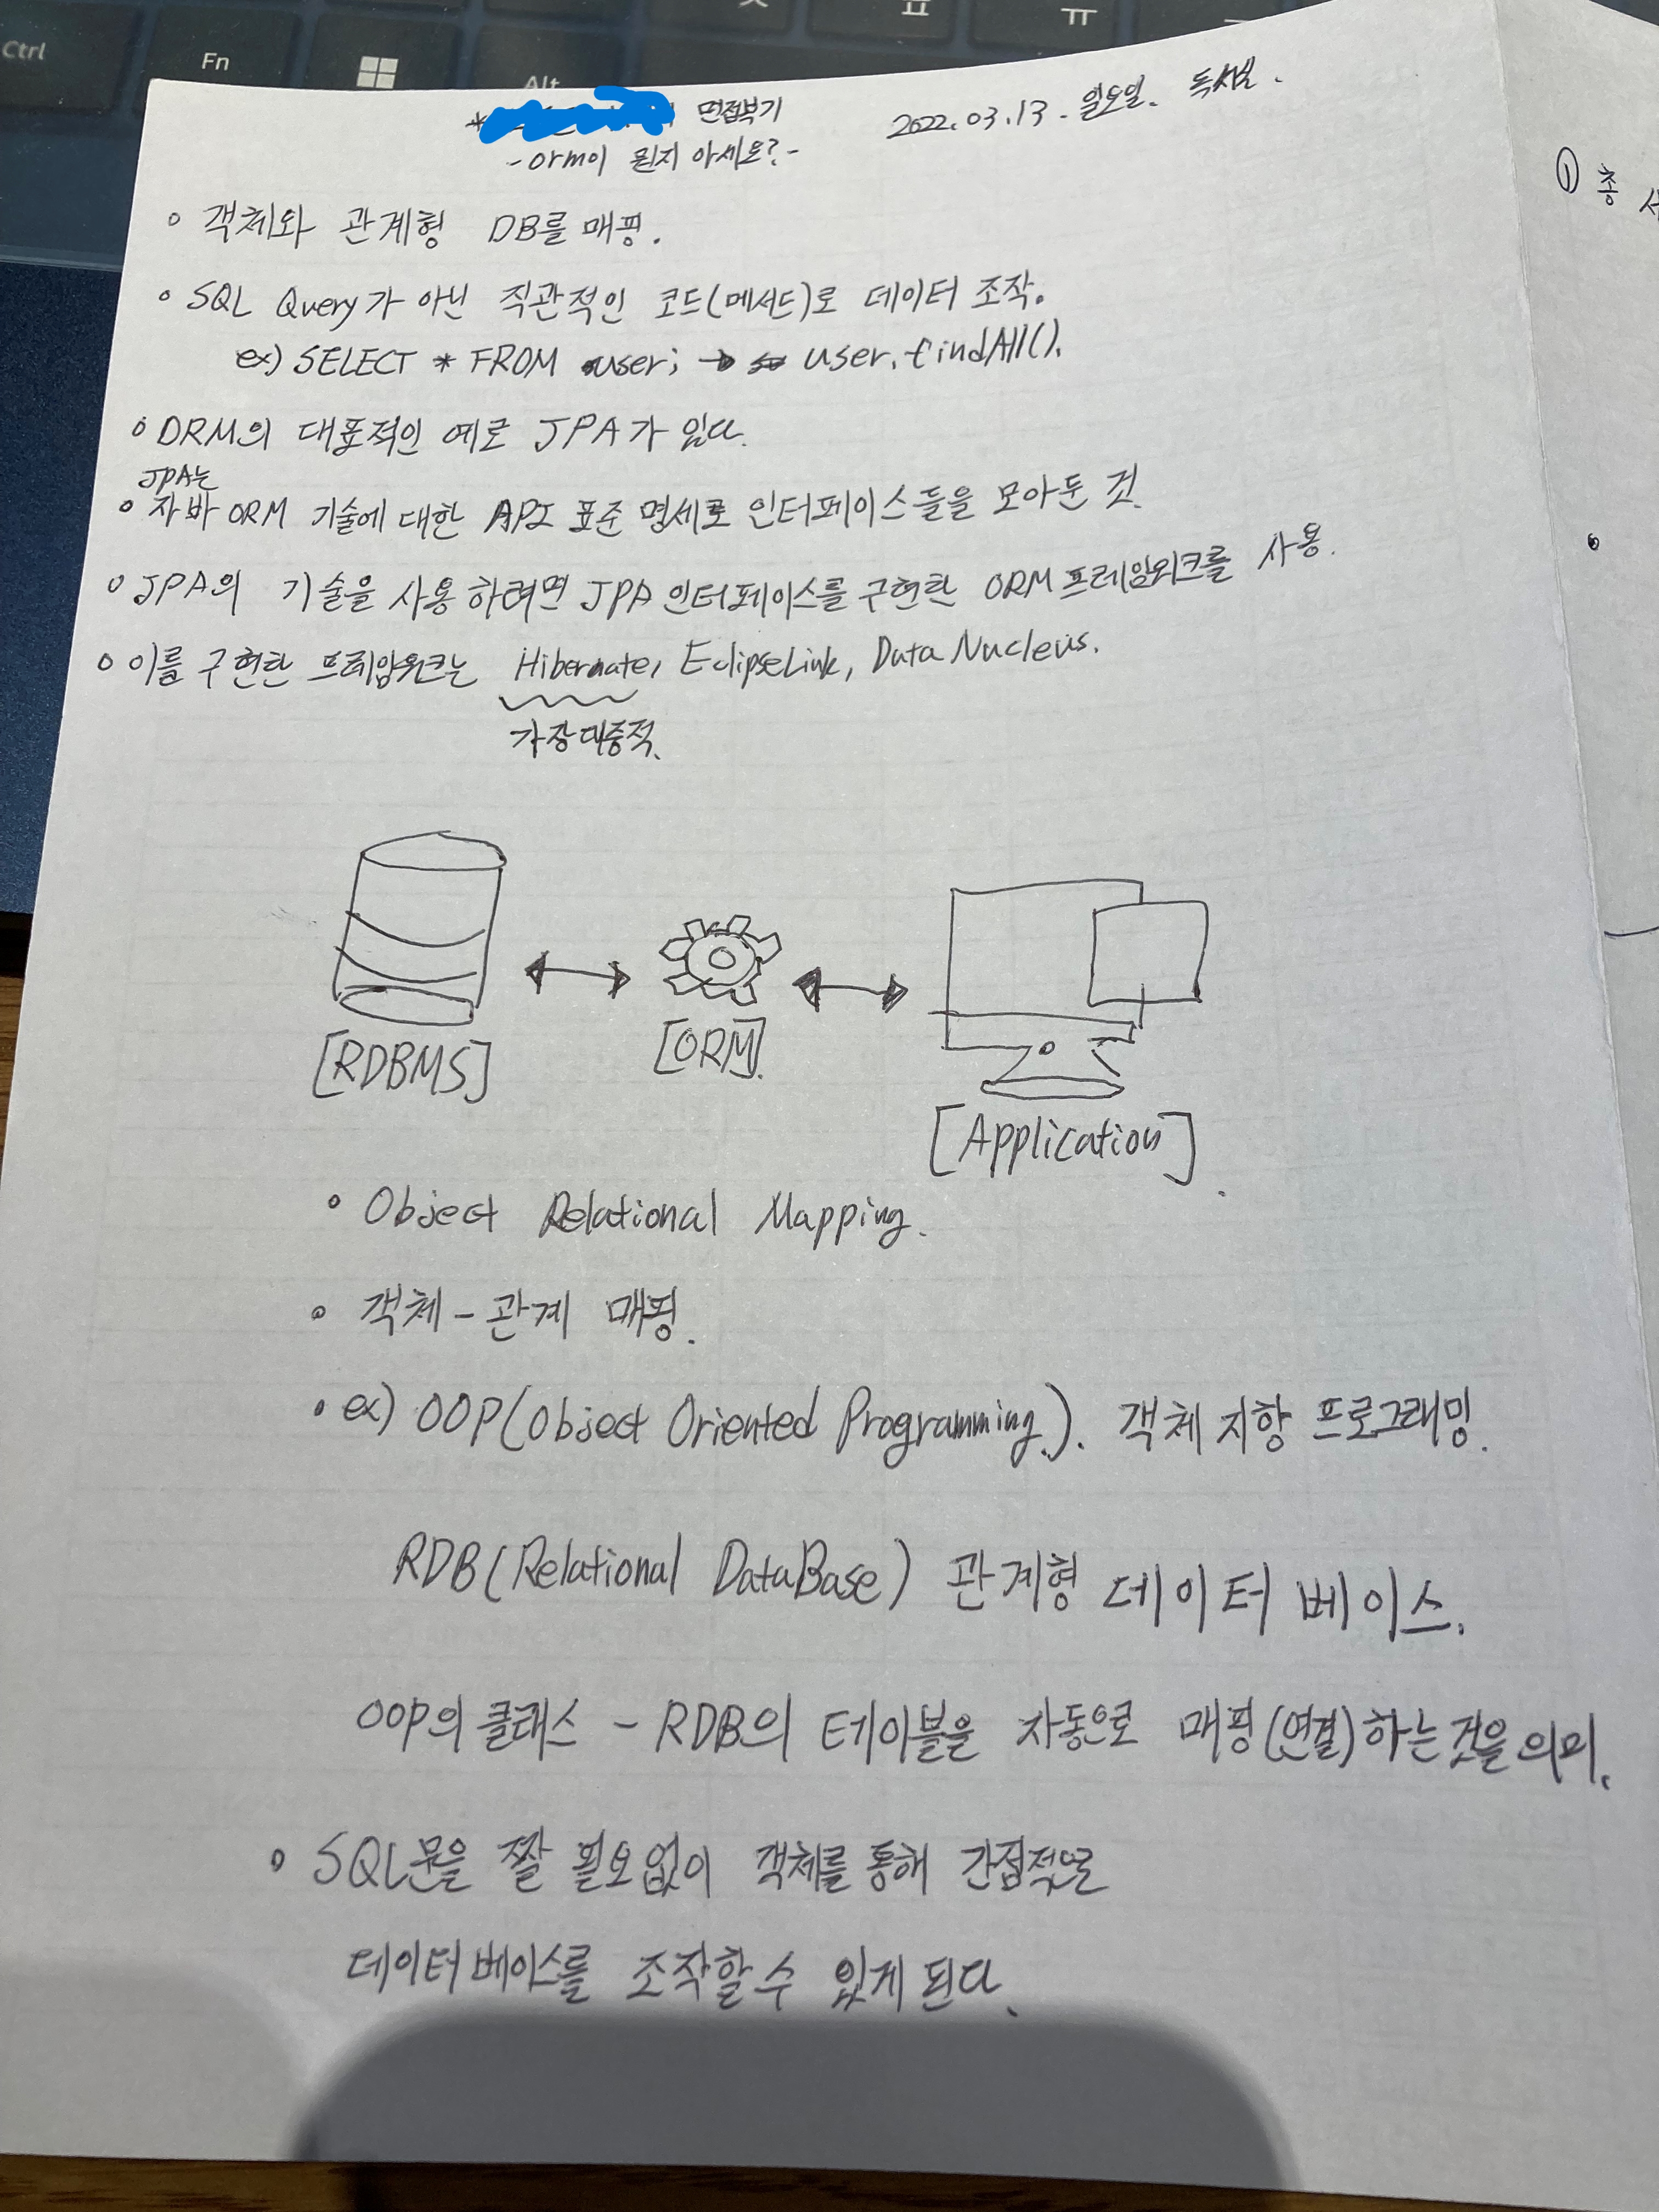 Ctrl
Fn
Alt
ㅍ
ㅠ
* 면접복기
2022.03.13. 일요일. 독서실.
- orm이 뭔지 아세요? -
◦ 객체와 관계형 DB를 매핑.
◦ SQL Query가 아닌 직관적인 코드(메서드)로 데이터 조작.
ex) SELECT * FROM user; → user.findAll().
◦ ORM의 대표적인 예로 JPA가 있다.
JPA는
◦ 자바 ORM 기술에 대한 API 표준 명세로 인터페이스들을 모아둔 것.
◦ JPA의 기술을 사용하려면 JPA 인터페이스를 구현한 ORM 프레임워크를 사용.
◦ 이를 구현한 프레임워크는 Hibernate, EclipseLink, DataNucleus.
가장 대중적.
[RDBMS]
[ORM].
[Application].
◦ Object Relational Mapping.
◦ 객체 - 관계 매핑.
◦ ex) OOP(Object Oriented Programming.). 객체 지향 프로그래밍.
RDB(Relational DataBase) 관계형 데이터 베이스.
OOP의 클래스 - RDB의 테이블을 자동으로 매핑(연결)하는 것을 의미.
◦ SQL문을 짤 필요없이 객체를 통해 간접적으로
데이터베이스를 조작할 수 있게 된다.
① 총